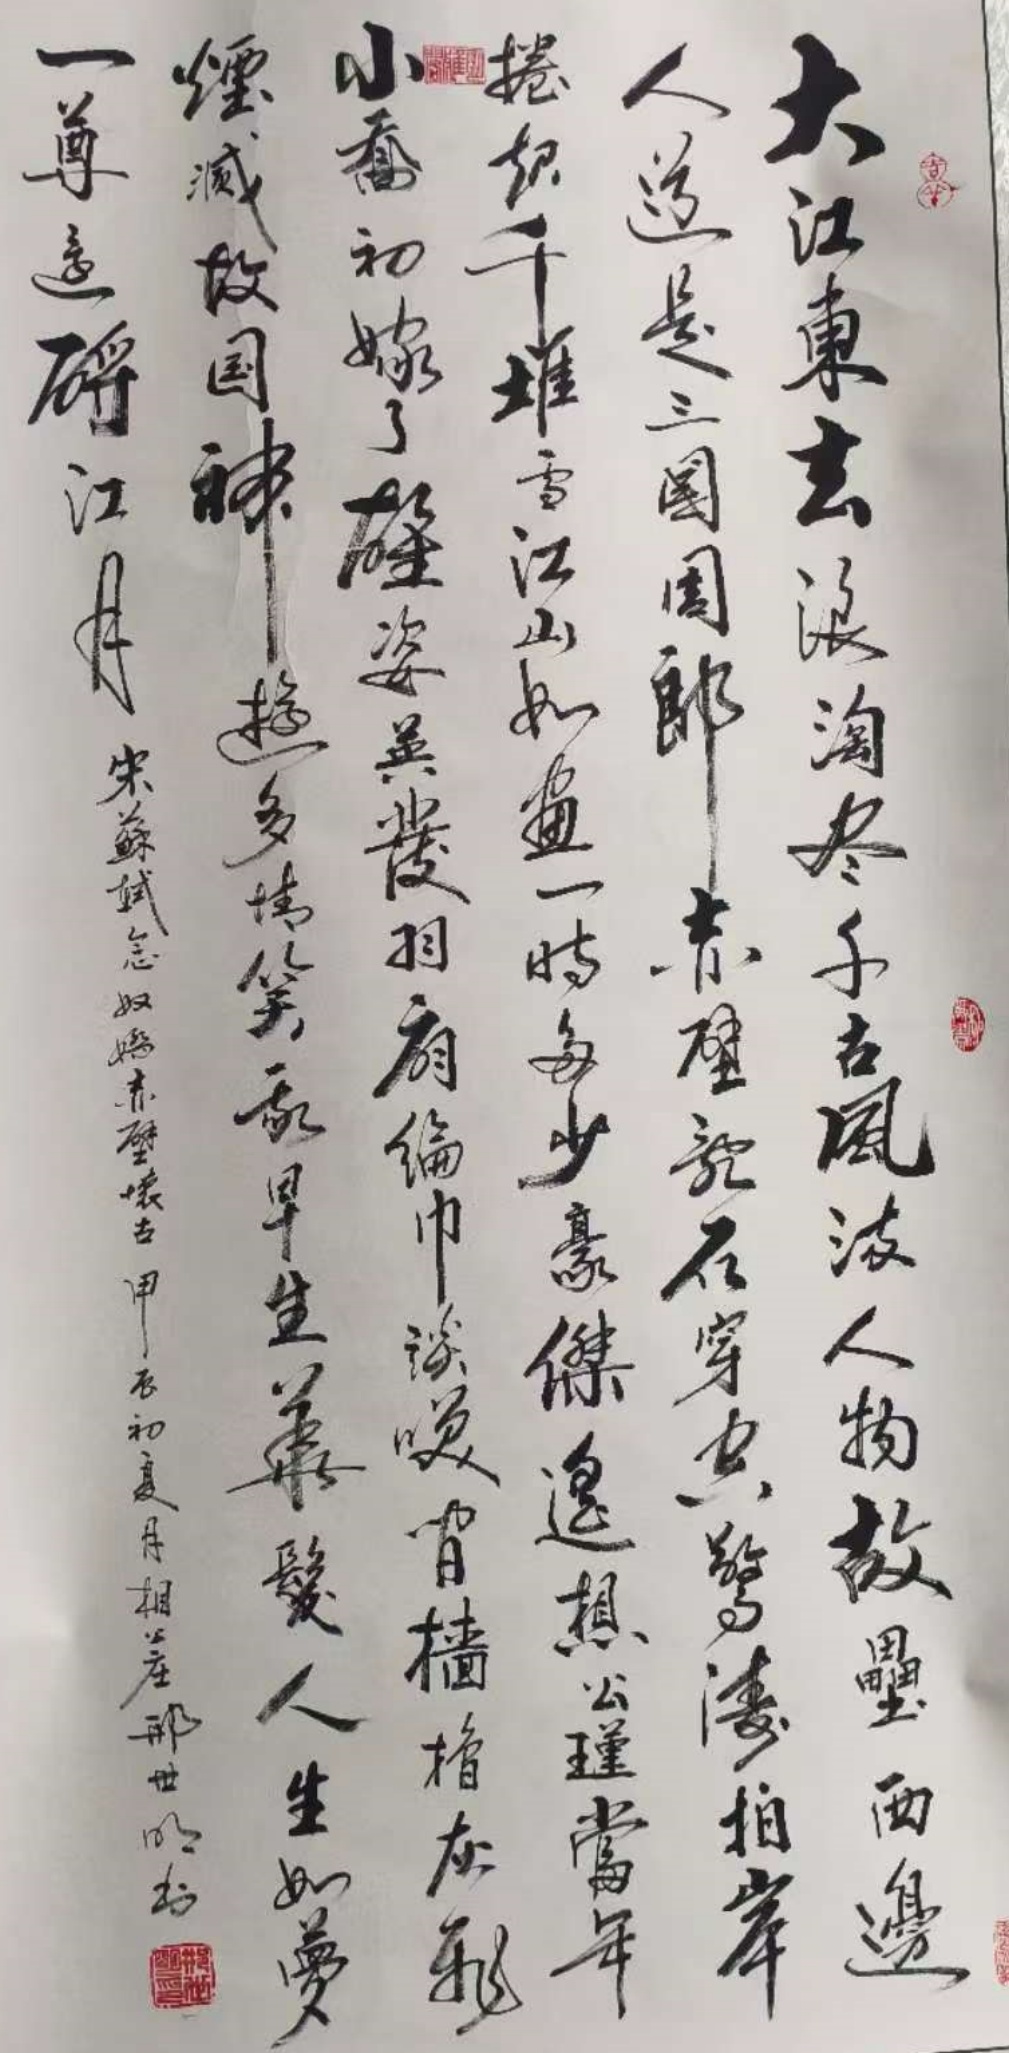 大江東去浪淘尽千古風流人物故壘西邊
人道是三國周郎赤壁亂石穿空驚濤拍岸
捲起千堆雪江山如畫一時多少豪傑遙想公瑾當年
小喬初嫁了雄姿英發羽扇綸巾談笑間檣櫓灰飛
煙滅故国神遊多情笑我早生華髮人生如夢
一尊還酹江月
宋蘇軾念奴嬌赤壁懷古甲辰初夏月相崖邢世明书